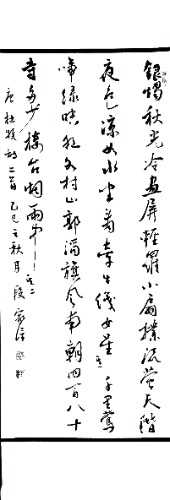 銀燭秋光冷畫屏輕羅小扇撲流螢天階
夜色涼如水坐看牽牛織女星 其一 千里鶯
啼綠映紅水村山郭酒旗風南朝四百八十
寺多少樓台烟雨中 其二
唐杜牧詩二首 乙巳之秋月 段家